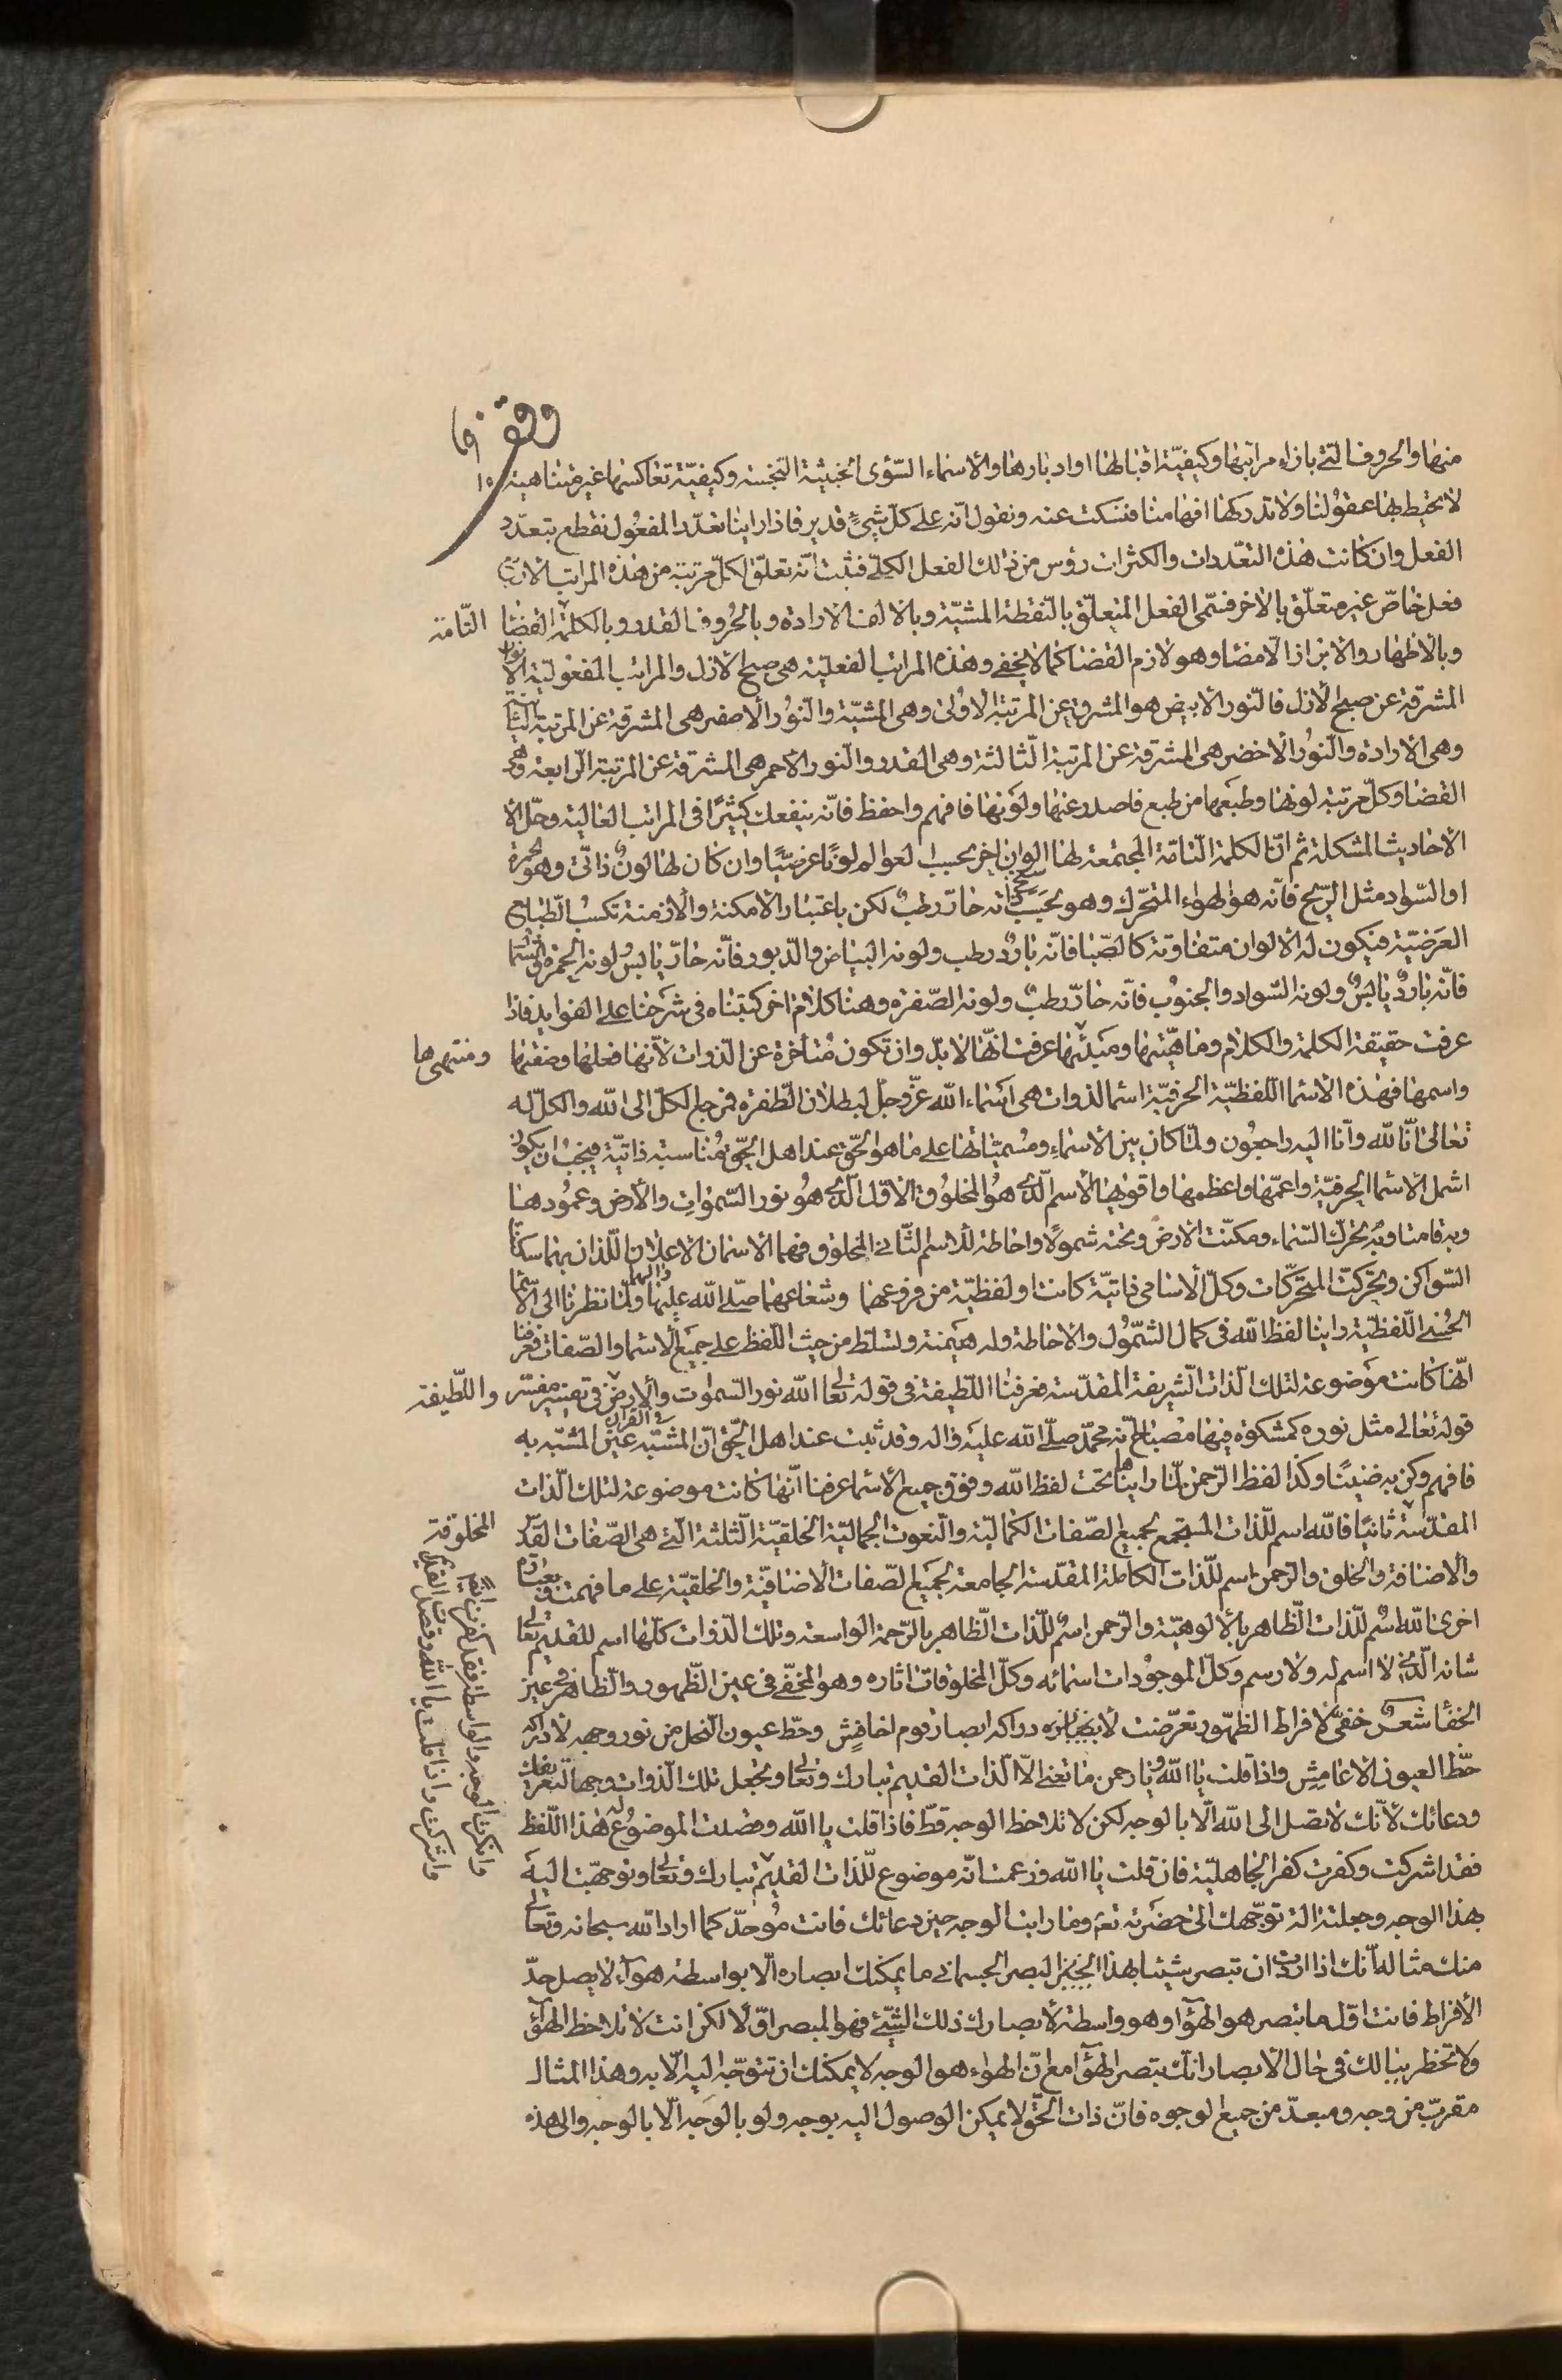 وقف
منها والحروف التي بازاء مراتبها وكيفيّة اقبالها او ادبارها والاسماء السّوءى الخبيثة النّجسة وكيفيّة تعاكسها غير متناهية
لا تحيط بها عقولنا ولا تدركها افهامنا فنسكت عنه ونقول انّه على كلّ شيءٍ قدير فاذا راينا تعدّد المفعول نقطع بتعدّد
الفعل وان كانت هذه التعّددات والكثرات رؤس من ذلك الفعل الكلّي فثبت انّه تعلّق لكلّ مرتبة من هذه المراتب
فعل خاصّ غير متعلّق بالاخر فسمّى الفعل المتعلّق بالنّقطة المشيّة وبالالف الارادة وبالحروف القدر وبالكلمة القضا التّامة
وبالاظهار والابراز الامضا وهو لازم القضا كما لا يخفى وهذه المراتب الفعليّة هي صبح الازل والمراتب المفعوليّة الانوار
المشرقة عن صبح الازل فالنّور الابيض هو المشرق عن المرتبة الاولى وهي المشيّة والنّور الاصفر هي المشرقة عن المرتبة الثانية
وهي الارادة والنّور الاخضر هي المشرقة عن المرتبة الثالثة وهي القدر والنّور الاحمر هي المشرقة عن المرتبة الرّابعة وهي
القضا وكلّ مرتبة لونها وطبعها من طبع ما صدر عنها ولونها فافهم واحفظ فانّه ينفعك كثيرًا في المراتب العالية وحلّ
الاحاديث المشكلة ثم انّ الكلمة التّامّة المجتمعة لها الوان اخر بحسب العوالم لونًا عرضيًّا وان كان لها لونٌ ذاتّي وهو الحمرة
او السّواد مثل الرّيح فانّه هو الهواء المتحرّك وهو بحسب ذاته حارّ رطبٌ لكن باعتبار الامكنة والازمنة تكسب الطّبايع
العرَضيّة فيكون له الالوان متفاوتة كالصّبا فانّه باردٌ رطب ولونه البياض والدّبور فانّه حارّ يابسٌ لونه الحمرة والشّمال
فانّه باردٌ يابسٌ ولونه السّواد والجنوب فانّه حارّ رطبٌ ولونه الصّفرة وهنا كلام اخر كتبناه في شرحنا على الفوايد فاذا
عرفت حقيقة الكلمة والكلام وماهيّتها ومبدئها عرفت انّها لا بدّ وان تكون متأخرة عن الذّوات لانّها فعلها وصفتها ومنتهىها
واسمها فهذه الاسما اللّفظيّة الحرفيّة اسما الذوات هي اسماء الله عزّ وجلّ لبطلان الطّفرة فرجع الكلّ الى الله والكلّ له
تعالى انّا لله وانّا اليه راجعون ولمّا كان بين الاسماءِ ومُسميّاتها على ما هو الحّق عند اهل الحّق مُناسبة ذاتيّة فيجب ان يكون
اشمل الاسما الحرفيّة واعمّها واعظمها واقويها الاسم الّذي هُو المخلوق الاوّل الّذي هُو نور السّموات والأرض وعمُودها
وبه قامتا وبه تحرّك السّماء وسكنت الارض وتحته شمولًا واحاطة للاسم الثّاني المخلوق فهما الاسمان الاعليان اللّذان بهما سكنت
السّواكن وتحرّكت المتحرّكات وكلّ الاسامي ذاتيّة كانت او لفظيّة من فروعهما وشعاعهما صلّى الله عليهما والهما ولمّا نظرنا الى الاسّما
الحُسنى اللّفظيّة راينا لفظ الله في كمال الشّمول والاحاطة وله هيمنة وتسلّط من حيث اللّفظ على جميع الاسما والصّفات فعرفنا
انّها كانت موضوعة لتلك الذّات الشّريفة المقدّسة فعرفنا اللّطيفة في قوله تعالى الله نور السّموات والارض في تفسير مفسّر واللّطيفة
قوله تعالى مثل نوره كمشكوة فيها مصباح انّه محمّد صلّى الله عليه واله وقد ثبت عند اهل الحّق انّ المشبّه في القران عين المشبّه به
فافهم وكن به ضنينًا وكذا لفظ الرّحمن لمّا رايناها تحت لفظ الله وفوق جميع الاسما عرفنا انّها كانت موضوعة لتلك الذّات
المقدّسة ثانيًا فالله اسم للّذات المستجمع لجميع الصّفات الكماليّة والنّعوت الجماليّة الخلقيّة الثّلثة الّتي هي الصّفات القدس المخلوقة
والاضافة والخلق والرّحمن اسم للّذات الكاملة المقدّسة الجامعة لجميع الصّفات الاضافيّة والخلقيّة على ما فهمت وبعبارة
اخرى الله اسُم للّذات الظّاهر بالالوهيّة والرّحمن اسمٌ للّذات الظّاهر بالرّحمة الواسعة وتلك الذّوات كلّها اسم للقديم تعالى
شانه الّذي لا اسم له ولا رسم وكلّ الموجودات اسمائه وكلّ المخلوقات اثاره وهو المخفّي في عين الظّهور والظّاهر في عين
الخفأ شعرٌ خفيّ لافراط الظهّور تعرّضت لادراكه ابصار قوم اخافش وحظّ عيون النّجل من نور وجهه لادراكه
حظّ العيون الاعامش واذا قلت يا الله ويا رحمن ما تعني الّا الذّات القديم تبارك وتعالى وتجعل تلك الّذوات وجها لتعريفك
ودعائك لانّك لا تصل الى الله الّا بالوجه لكن لا تلاحظ الوجه قطّ فاذا قلت يا الله وقصدت الموضوع له هذا اللّفظ
فقد اشركت وكفرت كفر الجاهليّة فان قلت يا الله وزعمت انّه موضوع للّذات القديم تبارك وتعالى وتوجهّت اليه
بهذا الوجه وجعلته الة توجّهك الى حضرته تعم وما رايت الوجه حين دعائك فانت مُوحدّ كما اراد الله سبحانه وتعالى
منك مثاله انّك اذا اردت ان تبصر شيئا بهذا البصر الجسماني ما يمكنك ابصاره الّا بواسطة هوآء لا يصل حدّ
الأفراط فانت اوّل ما تبصر هو الهوآ وهو واسطة لابصارك ذلك الشّيء فهو المبصر اوّلا لكن انت لا تلاحظ الهوآ
ولا تخطر ببالك في حال الابصار انّك تبصر الهوآ مع انّ الهواء هو الوجه لا يمكنك ان تتوّجه اليه الّا به وهذا المثال
مقرّب من وجه ومبعّد من جميع الوجوه فانّ ذات الحّق لا يمكن الوصول اليه بوجه ولو بالوجه الّا بالوجه والى هذه